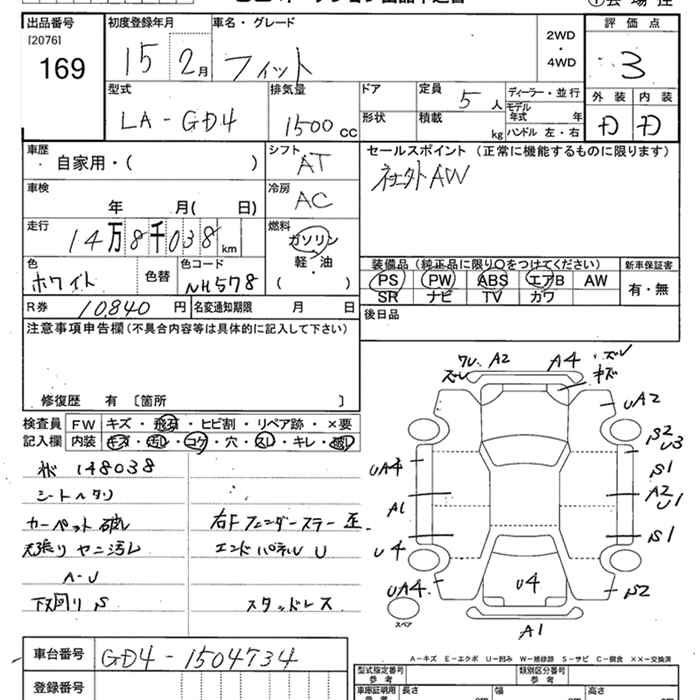 出品番号 初度登録年月 車名・グレード 2WD・4WD 評価点
[2076]
169 15 2月 フィット 3
外装 内装
D D
型式 排気量 ドア 定員 ディーラー・並行
LA-GD4 1500cc 5人
形状 積載 kg モデル年式 年
ハンドル 左・右
車歴 シフト セールスポイント(正常に機能するものに限ります)
自家用・( ) AT 社外AW
車検 冷房
年 月( 日) AC
走行 燃料
14万8千038km ガソリン
軽・油
( )
色 色替 色コード
ホワイト NH578
装備品(純正品に限り〇をつけてください) 新車保証書
PS PW ABS エアB AW 有・無
SR ナビ TV カワ
R券 10,840円 名変通知期限 月 日 後日品
注意事項申告欄(不具合内容等は具体的に記入して下さい)
修復歴 有 [箇所 ]
検査員 FW キズ・飛石・ヒビ割・リペア跡・×要
記入欄 内装 キズ・汚れ・コゲ・穴・スレ・キレ・
148038
シートヘタリ
カーペット破レ 右Fフェンダーステー歪
天張りヤニ汚レ エンドパネルU
A-U
下回りS スタッドレス
ワレ A2 A4 ズレ
ズレ キズ
UA2
S2
U3
UA4 S1
A1 A2
U1
U4 S1
UA4 U4 S2
スペア
A1
A-キズ E-エクボ U-凹み W-補修跡 S-サビ C-腐食 XX-交換済
車台番号 GD4-1504734
登録番号
型式指定番号 参考 類別区分番号 参考
車庫証明用 参考 長さ cm 幅 cm 高さ cm